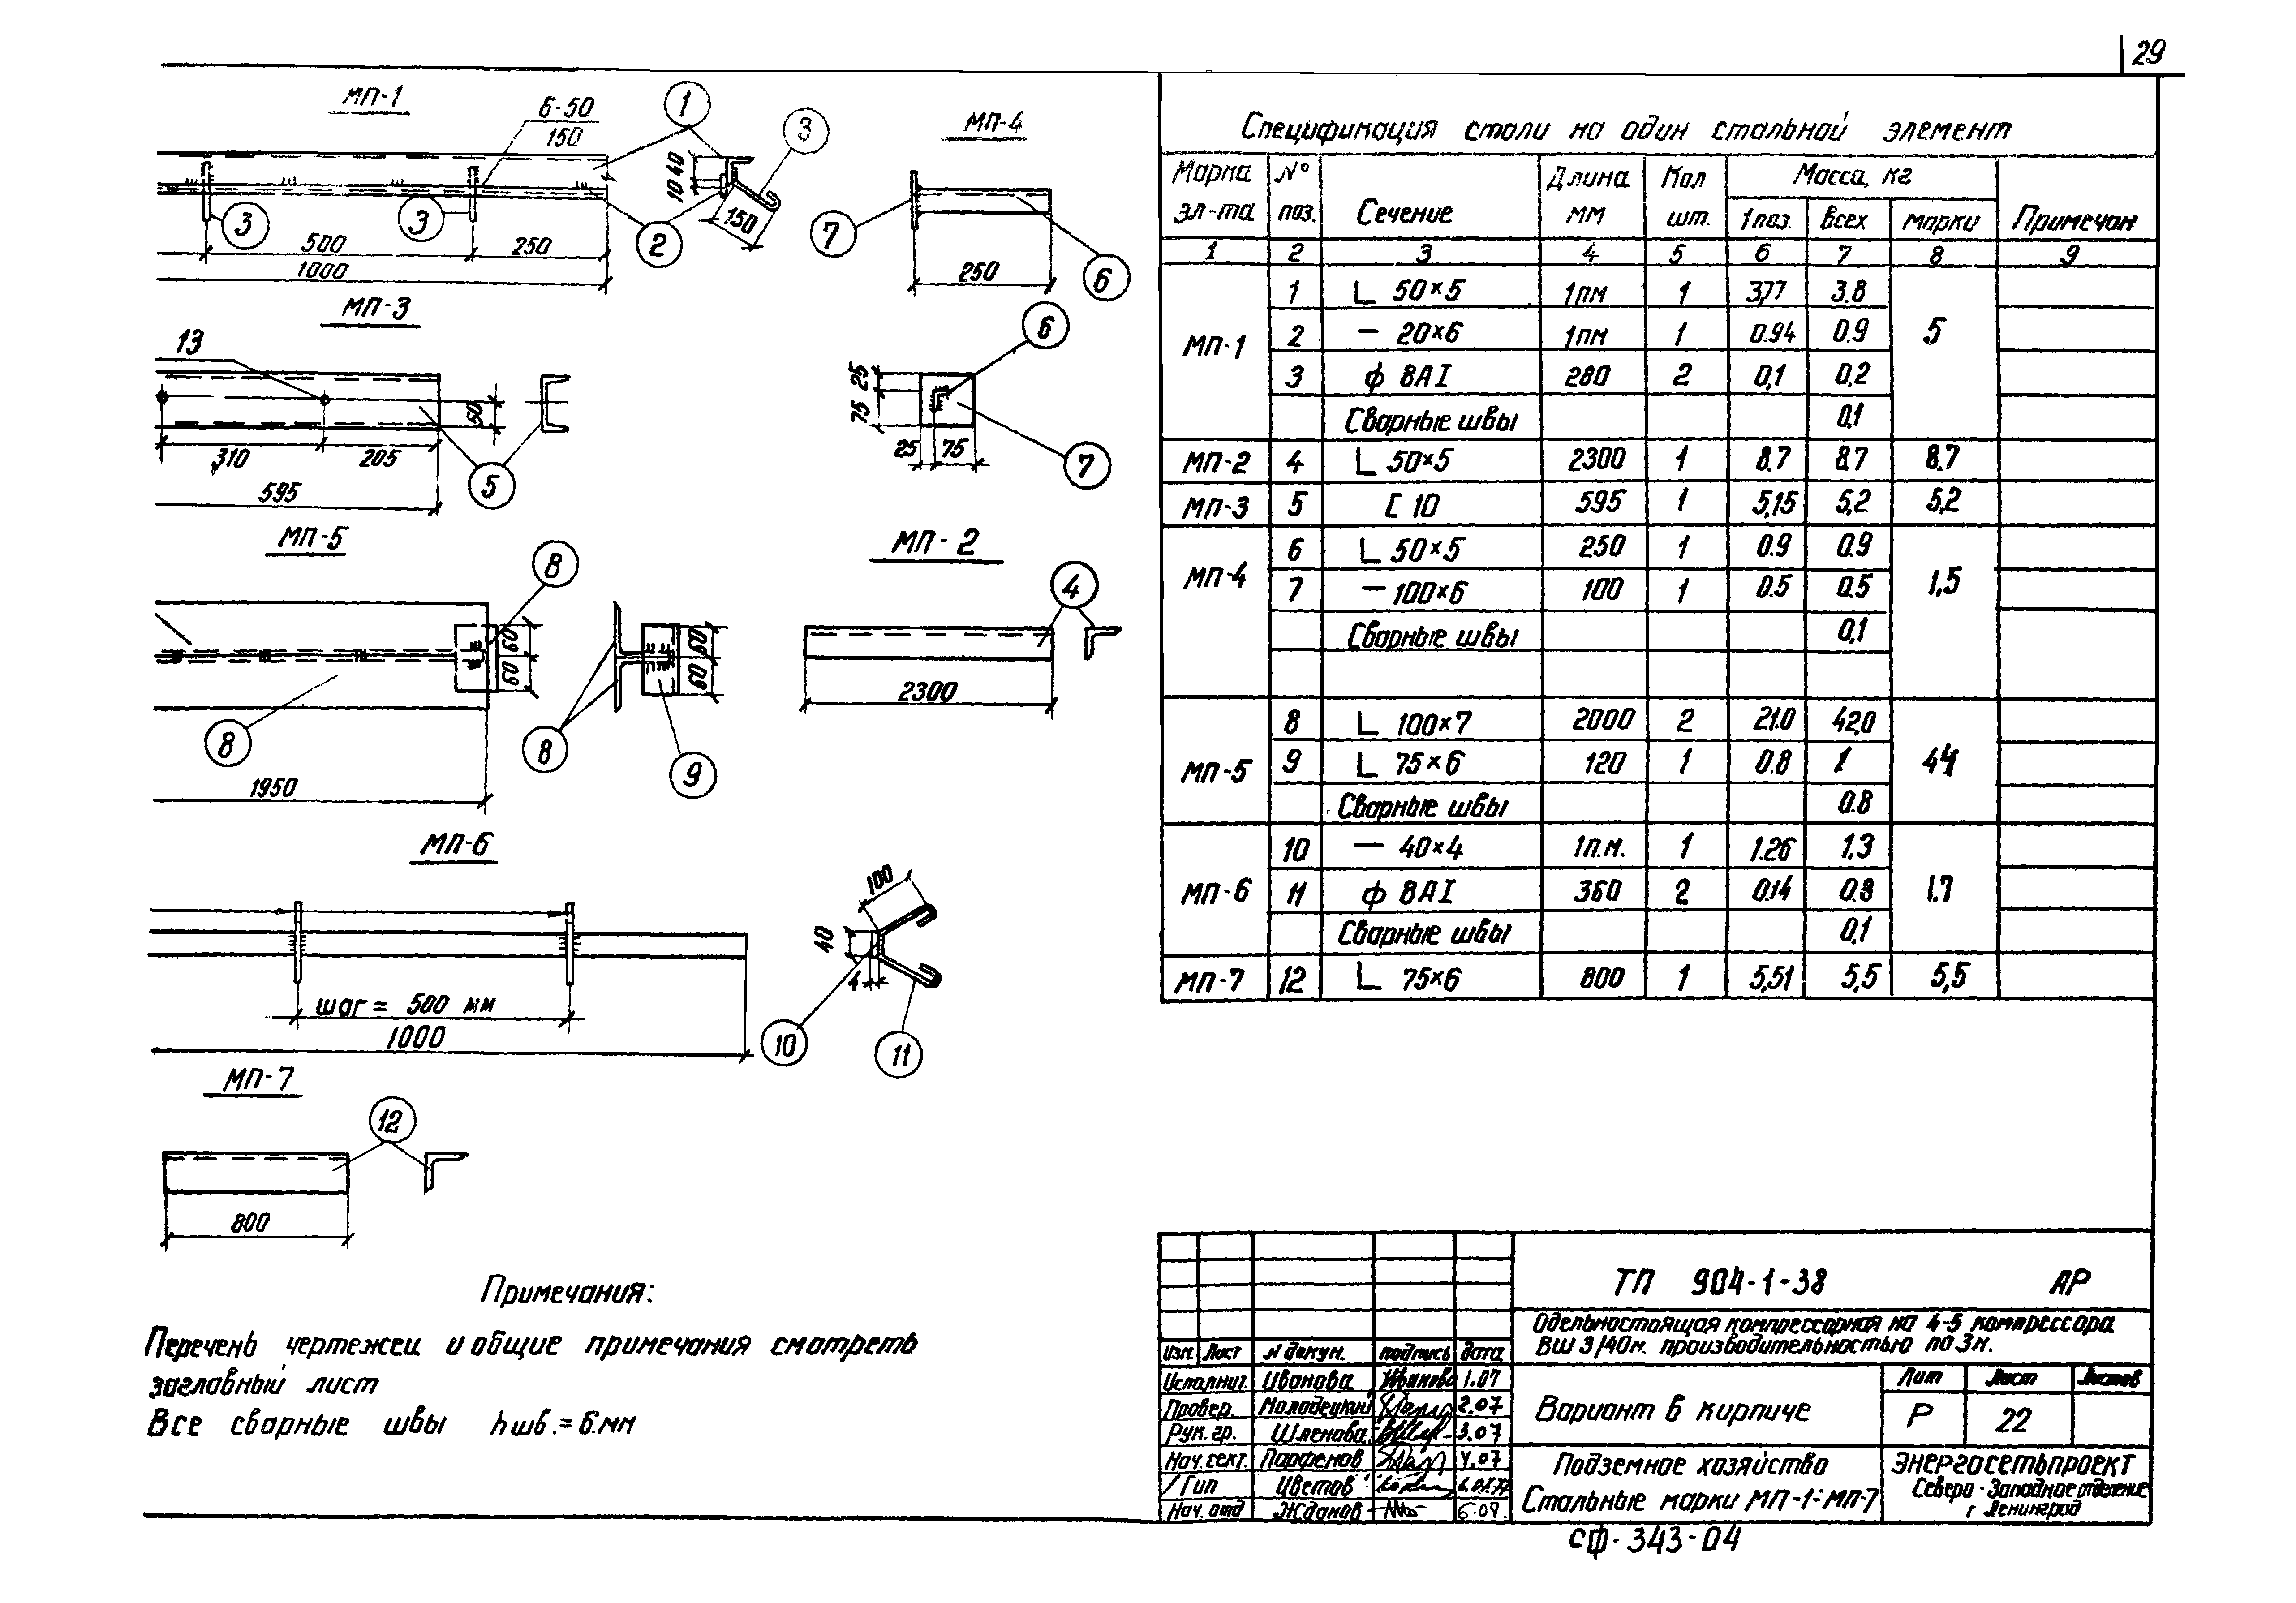 29
МП-1
6-50
150
1
3
40
10
150
3
3
2
500
250
1000
МП-4
7
6
250
МП-3
13
50
310
205
5
595
6
25
75
25
75
7
МП-5
8
60
60
8
60
60
8
9
1950
МП-2
4
2300
МП-6
шаг = 500 мм
1000
100
40
4
10
11
МП-7
12
800
Примечания:
Перечень чертежей и общие примечания смотреть
заглавный лист
Все сварные швы hшв.=6.мм
Спецификация стали на один стальной элемент
Марка эл-та № поз. Сечение Длина мм Кол шт. Масса, кг 1 поз. всех марки Примечан
1 2 3 4 5 6 7 8 9
МП-1 1 L 50×5 1пм 1 3,77 3.8 5
2 — 20×6 1пм 1 0.94 0.9
3 ф 8АI 280 2 0,1 0.2
Сварные швы 0,1
МП-2 4 L 50×5 2300 1 8.7 8.7 8.7
МП-3 5 [ 10 595 1 5,15 5,2 5,2
МП-4 6 L 50×5 250 1 0.9 0.9 1,5
7 — 100×6 100 1 0.5 0.5
Сварные швы 0,1
МП-5 8 L 100×7 2000 2 21.0 42,0 44
9 L 75×6 120 1 0.8 1
Сварные швы 0.8
МП-6 10 — 40×4 1п.м. 1 1.26 1.3 1.7
11 ф 8АI 360 2 0.14 0.3
Сварные швы 0,1
МП-7 12 L 75×6 800 1 5,51 5,5 5,5
ТП 904-1-38 АР
Одельностоящая компрессорная на 4-5 компрессора
ВШ 3/40м. производительностью по 3м.
Изм. Лист N докум. подпись дата
Исполнит. Иванова Иванова 1.07
Провер. Молодецкий 2.07
Рук. гр. Шленова 3.07
Нач. сект. Парфенов 4.07
Гип Цветов
Нач. отд Жданов 6.07.
Вариант в кирпиче
Лит Лист Листов
Р 22
Подземное хозяйство
Стальные марки МП-1÷МП-7
Энергосетьпроект
Северо-Западное отделение
г Ленинград
СФ. 343-04